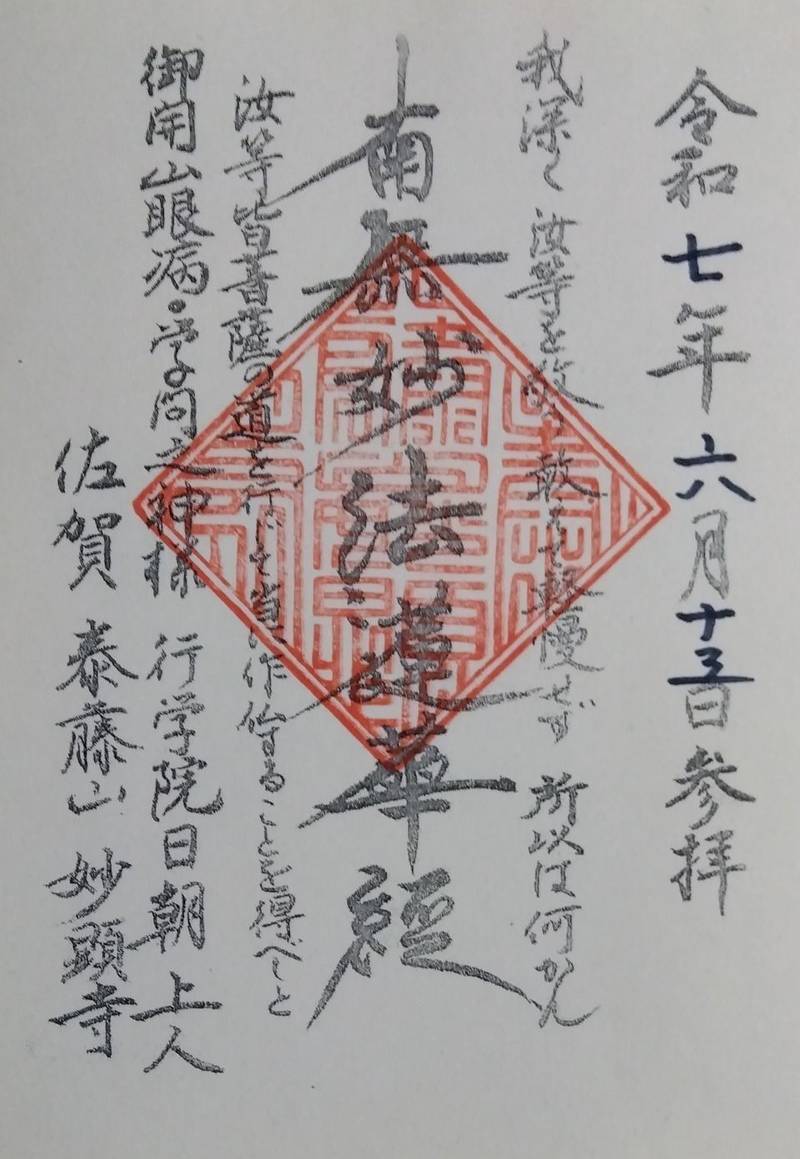 令和七年六月十三日参拝
我深く汝等を敬う敢えて軽慢せず所以は何かん
南無妙法蓮華経
汝等皆菩薩の道を行じて当に作仏することを得べしと
御開山眼病・学問之神様 行学院日朝上人
佐賀 泰藤山 妙顕寺